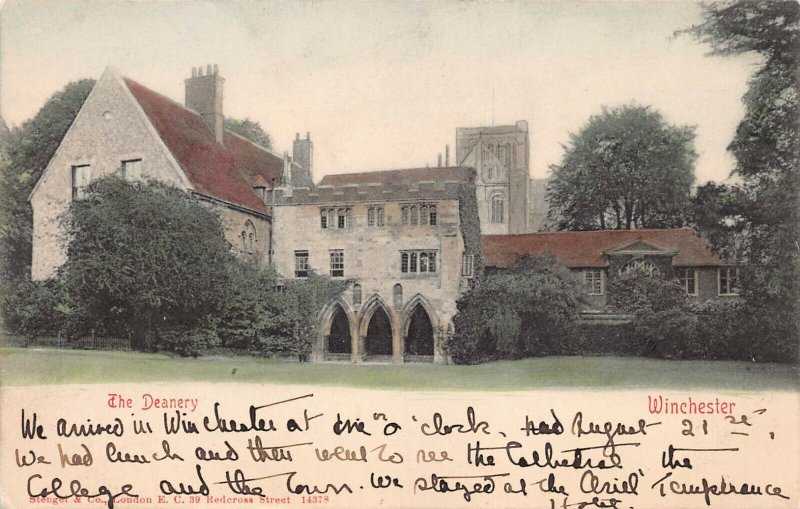 The Deanery
Winchester
We arrived in Winchester at one o'clock, August 21 st,
We had lunch and then went to see the Cathedral the
College and the town. We stayed at the 'Ariel' Temperance
Hotel.
Stengel & Co., London E. C. 39 Redcross Street 14378